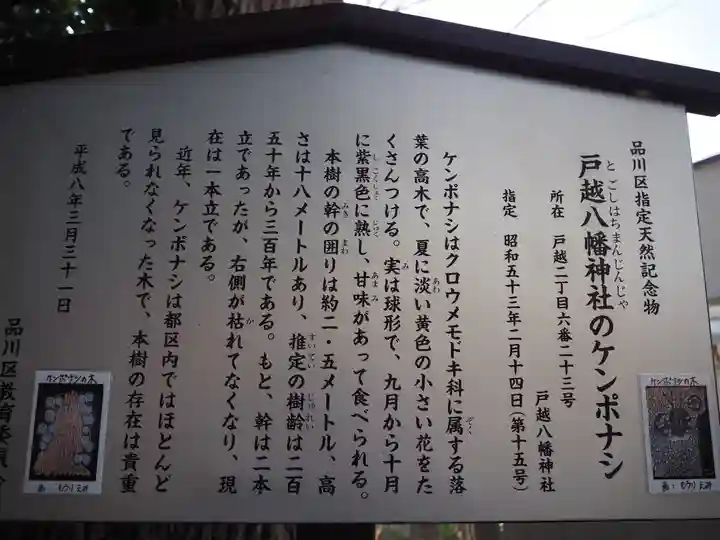 品川区指定天然記念物
戸越八幡神社のケンポナシ
とごしはちまんじんじゃ
所在 戸越二丁目六番二十三号
戸越八幡神社
指定 昭和五十三年二月十四日(第十五号)
ケンポナシはクロウメモドキ科に属する落
葉の高木で、夏に淡い黄色の小さい花をた
くさんつける。実は球形で、九月から十月
に紫黒色に熟し、甘味があって食べられる。
本樹の幹の囲りは約二・五メートル、高
さは十八メートルあり、推定の樹齢は二百
五十年から三百年である。もと、幹は二本
立であったが、右側が枯れてなくなり、現
在は一本立である。
近年、ケンポナシは都区内ではほとんど
見られなくなった木で、本樹の存在は貴重
である。
平成八年三月三十一日
品川区教育委員会
ケンポナシの木
ケンポナシの木